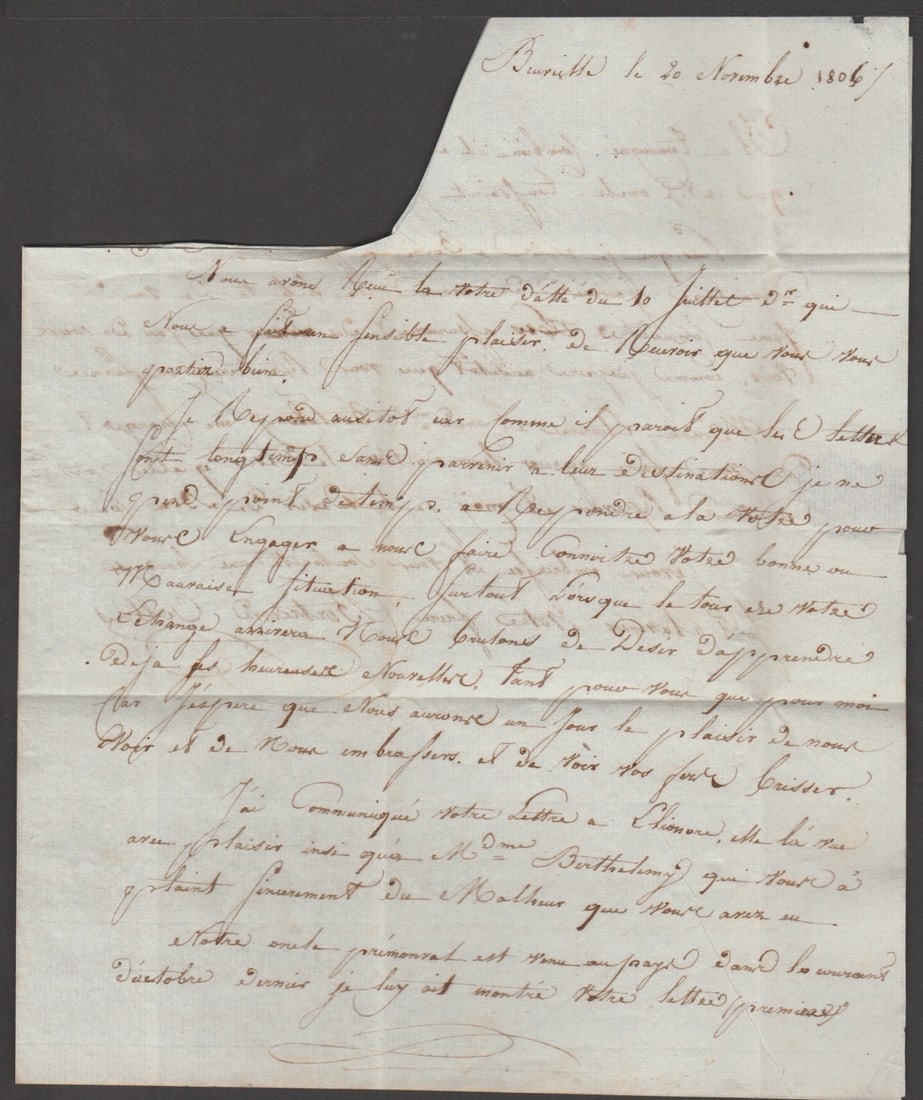 Beurville le 20 Novembre 1806
Nous avons Reçu la votre d'atté du 10 Juillet dr qui
Nous a fait un sensible plaisir de Recevoir que vous vous
portiez bien.
Je Respond ausitot car Comme il paroit que les lettre
sont longtemp sans parvenir a leur destinations je ne
perd point de temp. a Respondre a la votre pour
vous Engager a nous faire Connoitre votre bonne ou
Mauvaise situation, surtout Lorsque le tour de votre
Echange arrivera Nous brulons de Desir d'apprendre
deja ses heureuses Nouvelles, tant pour vous que pour moi
Car J'espere que Nous aurons un Jour le plaisir de nous
voir et de Nous embrassers. et de voir vos fers brisser.
J'ai Communiqué votre Lettre a Elionore, elle la vue
avec plaisir insi qu'a Mdme Berthelemy qui vous a
plaint sincerement du Malheur que vous avez eu
Notre oncle prémonval est venu au pays dans le courant
d'octobre dernier je luy ait montré votre lettre (premiere)